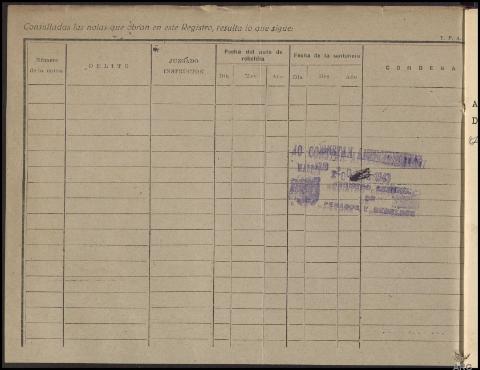 Consultadas las notas que obran en este Registro, resulta lo que sigue:
T. P. A.
Número de la nota
DELITO
JUZGADO INSTRUCTOR
Fecha del auto de rebeldía
Día Mes Año
Fecha de la sentencia
Día Mes Año
CONDENA
NO CONSTAN ANTECEDENTES
MADRID
REGISTRO CENTRAL
DE
PENADOS Y REBELDES
A
D